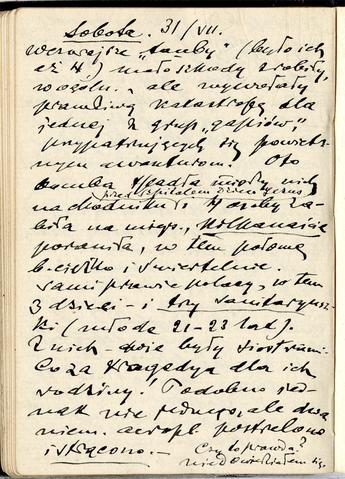 Sobota. 31/VII.
Wczorajsze „tauby” (było ich
aż 4.) mało szkody zrobiły,
wogóle, ale wywołały
prawdziwą katastrofę dla
jednej z grup „gapiów”,
przypatrujących się powietrz-
nym awanturom. Oto
bomba spadła między nich
przed szpitalem
na chodniku i 4 osoby za-
biła na miejs., kilkanaście
poraniła, w tem połowę
b. ciężko i śmiertelnie.
Sami prawie polacy, w tem
3 dzieci – i trzy sanitaryusz-
ki (młode 21–23 lat).
Z nich – dwie były siostrami.
Co za tragedya dla ich
rodziny! Podobno jed-
nak nie jednego, ale dwa
niem. aeropl. postrzelono
i strącono. –
Czy to prawda?
nie dowiedziałem się.